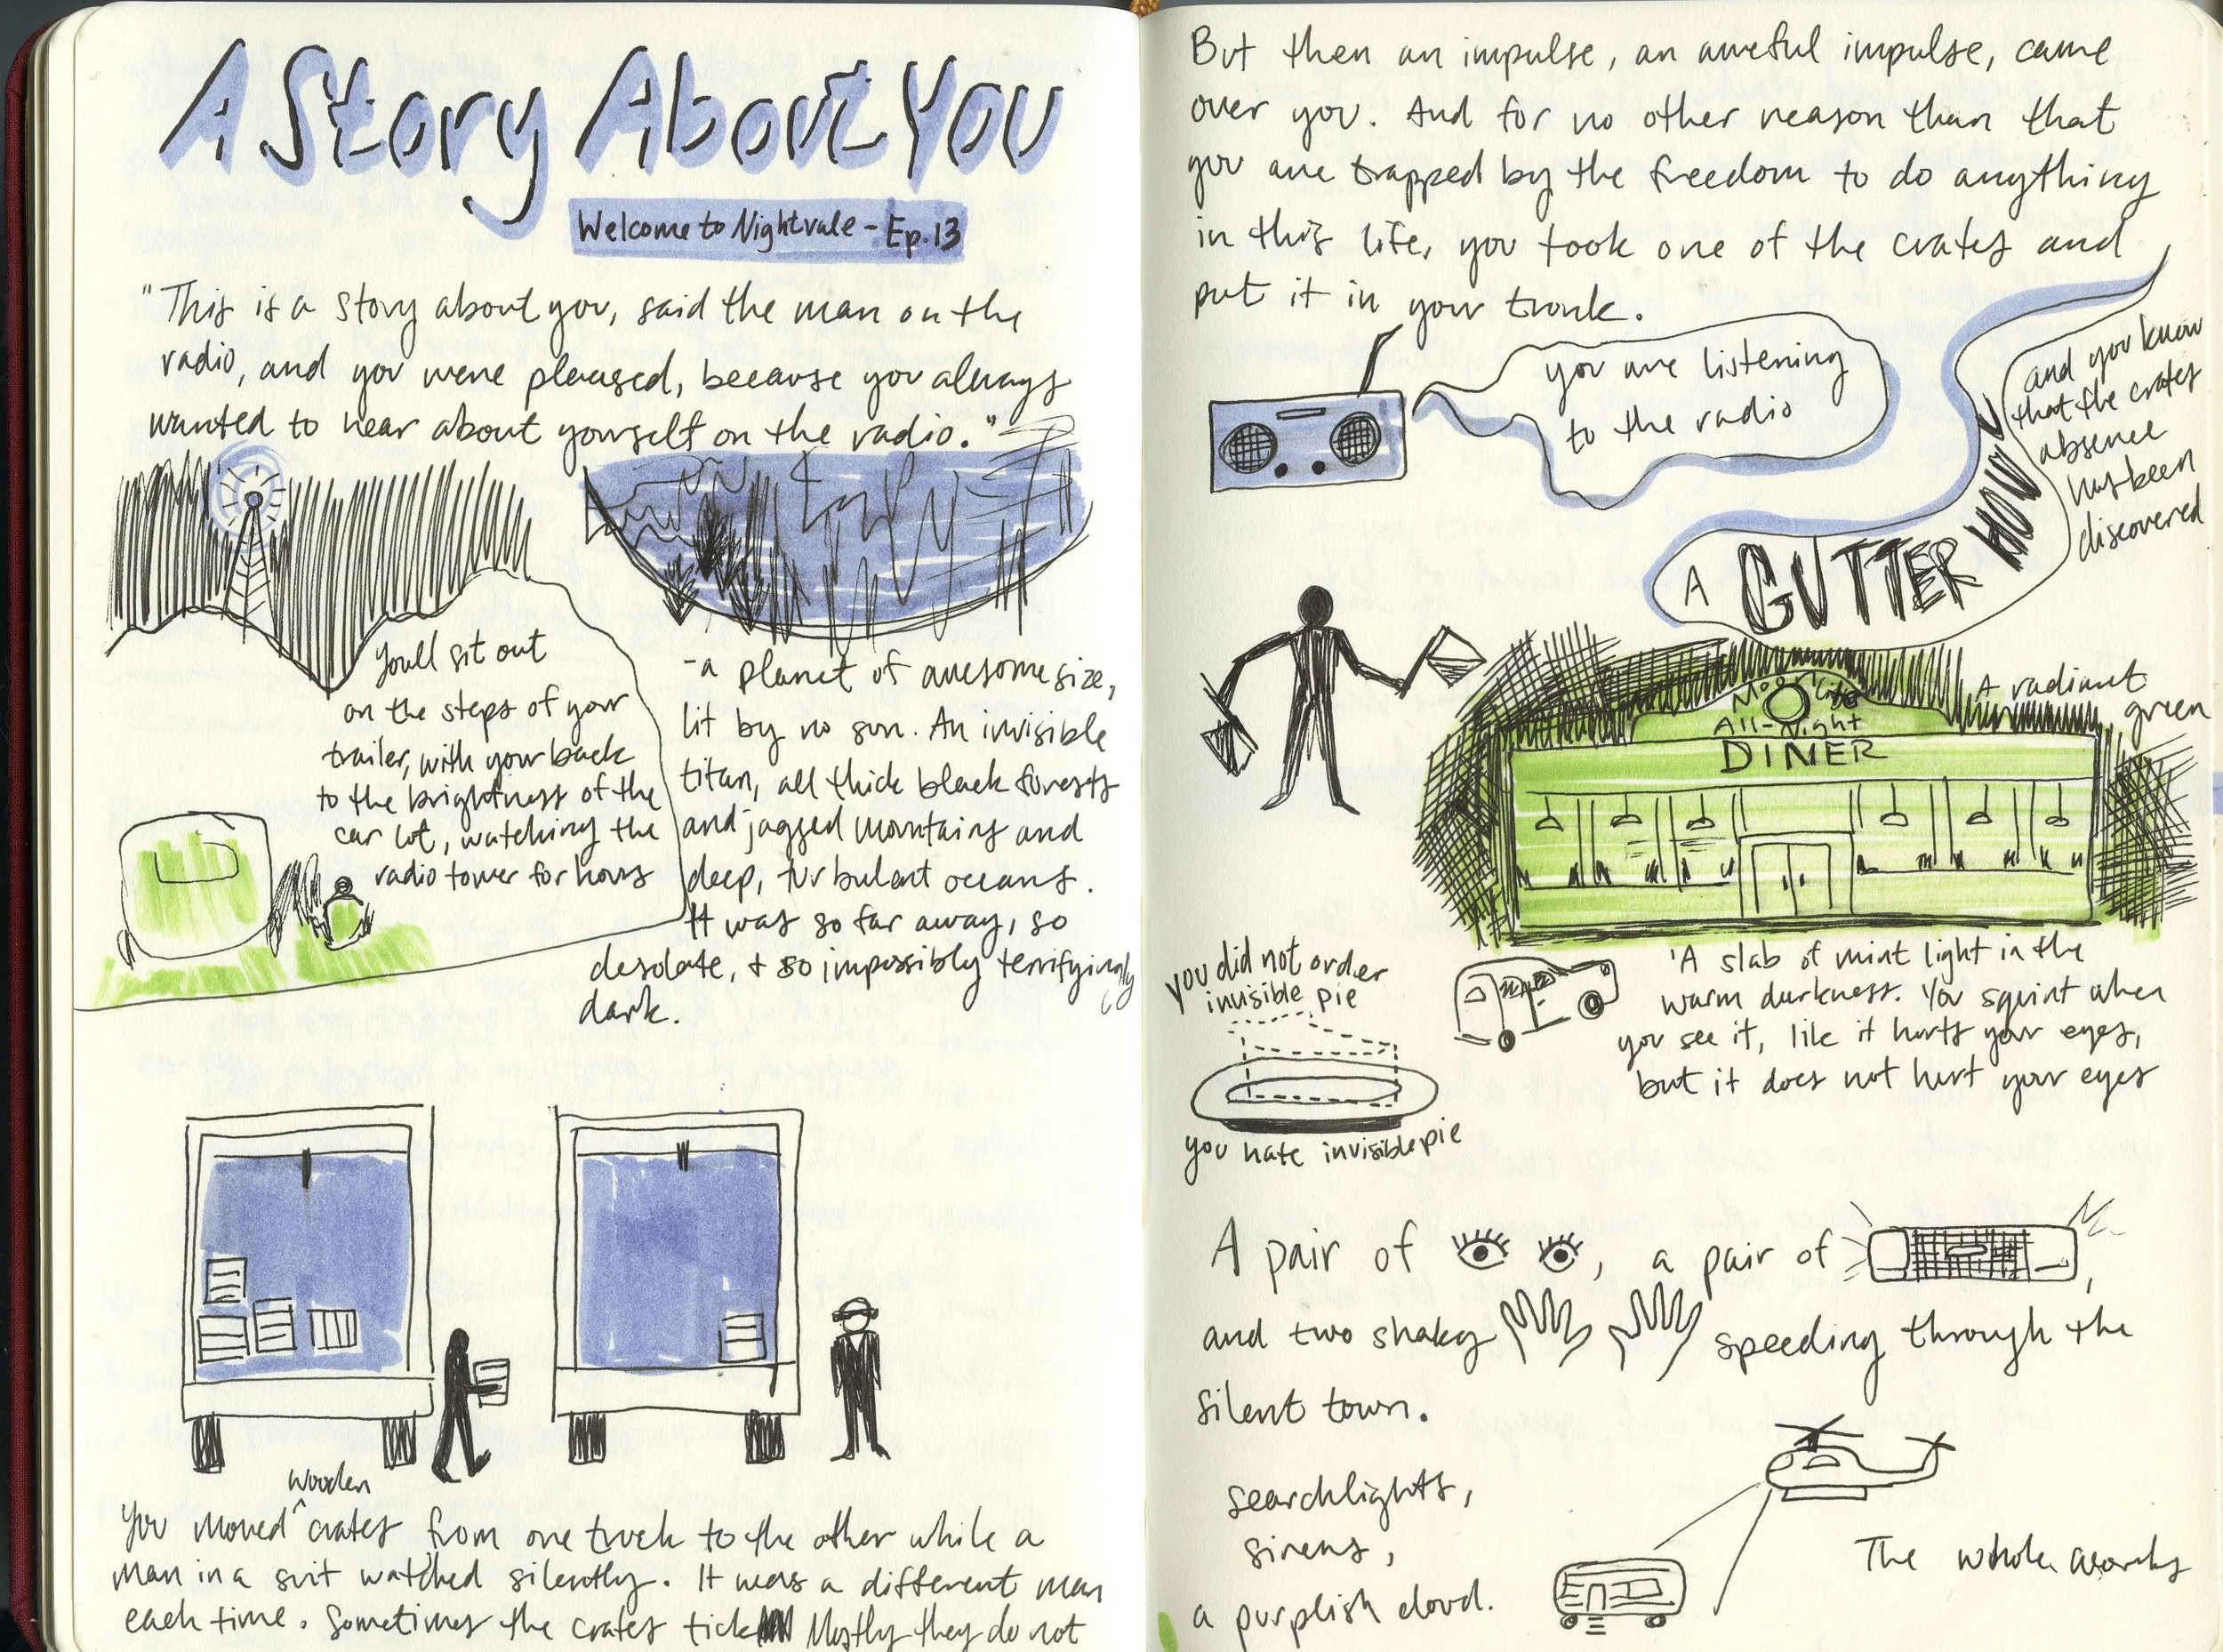 A Story About You
Welcome to Nightvale - Ep. 13
"This is a story about you, said the man on the
radio, and you were pleased, because you always
wanted to hear about yourself on the radio."
You'll sit out
on the steps of your
trailer, with your back
to the brightness of the
car lot, watching the
radio tower for hours
-a planet of awesome size,
lit by no sun. An invisible
titan, all thick black forests
and jagged mountains and
deep, turbulent oceans.
It was so far away, so
desolate, + so impossibly terrifyingly
dark.
wooden
You moved ^ crates from one truck to the other while a
man in a suit watched silently. It was a different man
each time. Sometimes the crates tick Mostly they do not
But then an impulse, an aweful impulse, came
over you. And for no other reason than that
you are trapped by the freedom to do anything
in this life, you took one of the crates and
put it in your trunk.
you are listening
to the radio
and you know
that the crates
absence
has been
discovered
A GUTTER HOWL
A radiant
green
Moonlite
All-Night
DINER
'A slab of mint light in the
warm darkness. You squint when
you see it, like it hurts your eyes,
but it does not hurt your eyes
you did not order
invisible pie
you hate invisible pie
A pair of , a pair of ,
and two shaky speeding through the
silent town.
searchlights,
sirens,
a purplish cloud.
The whole works